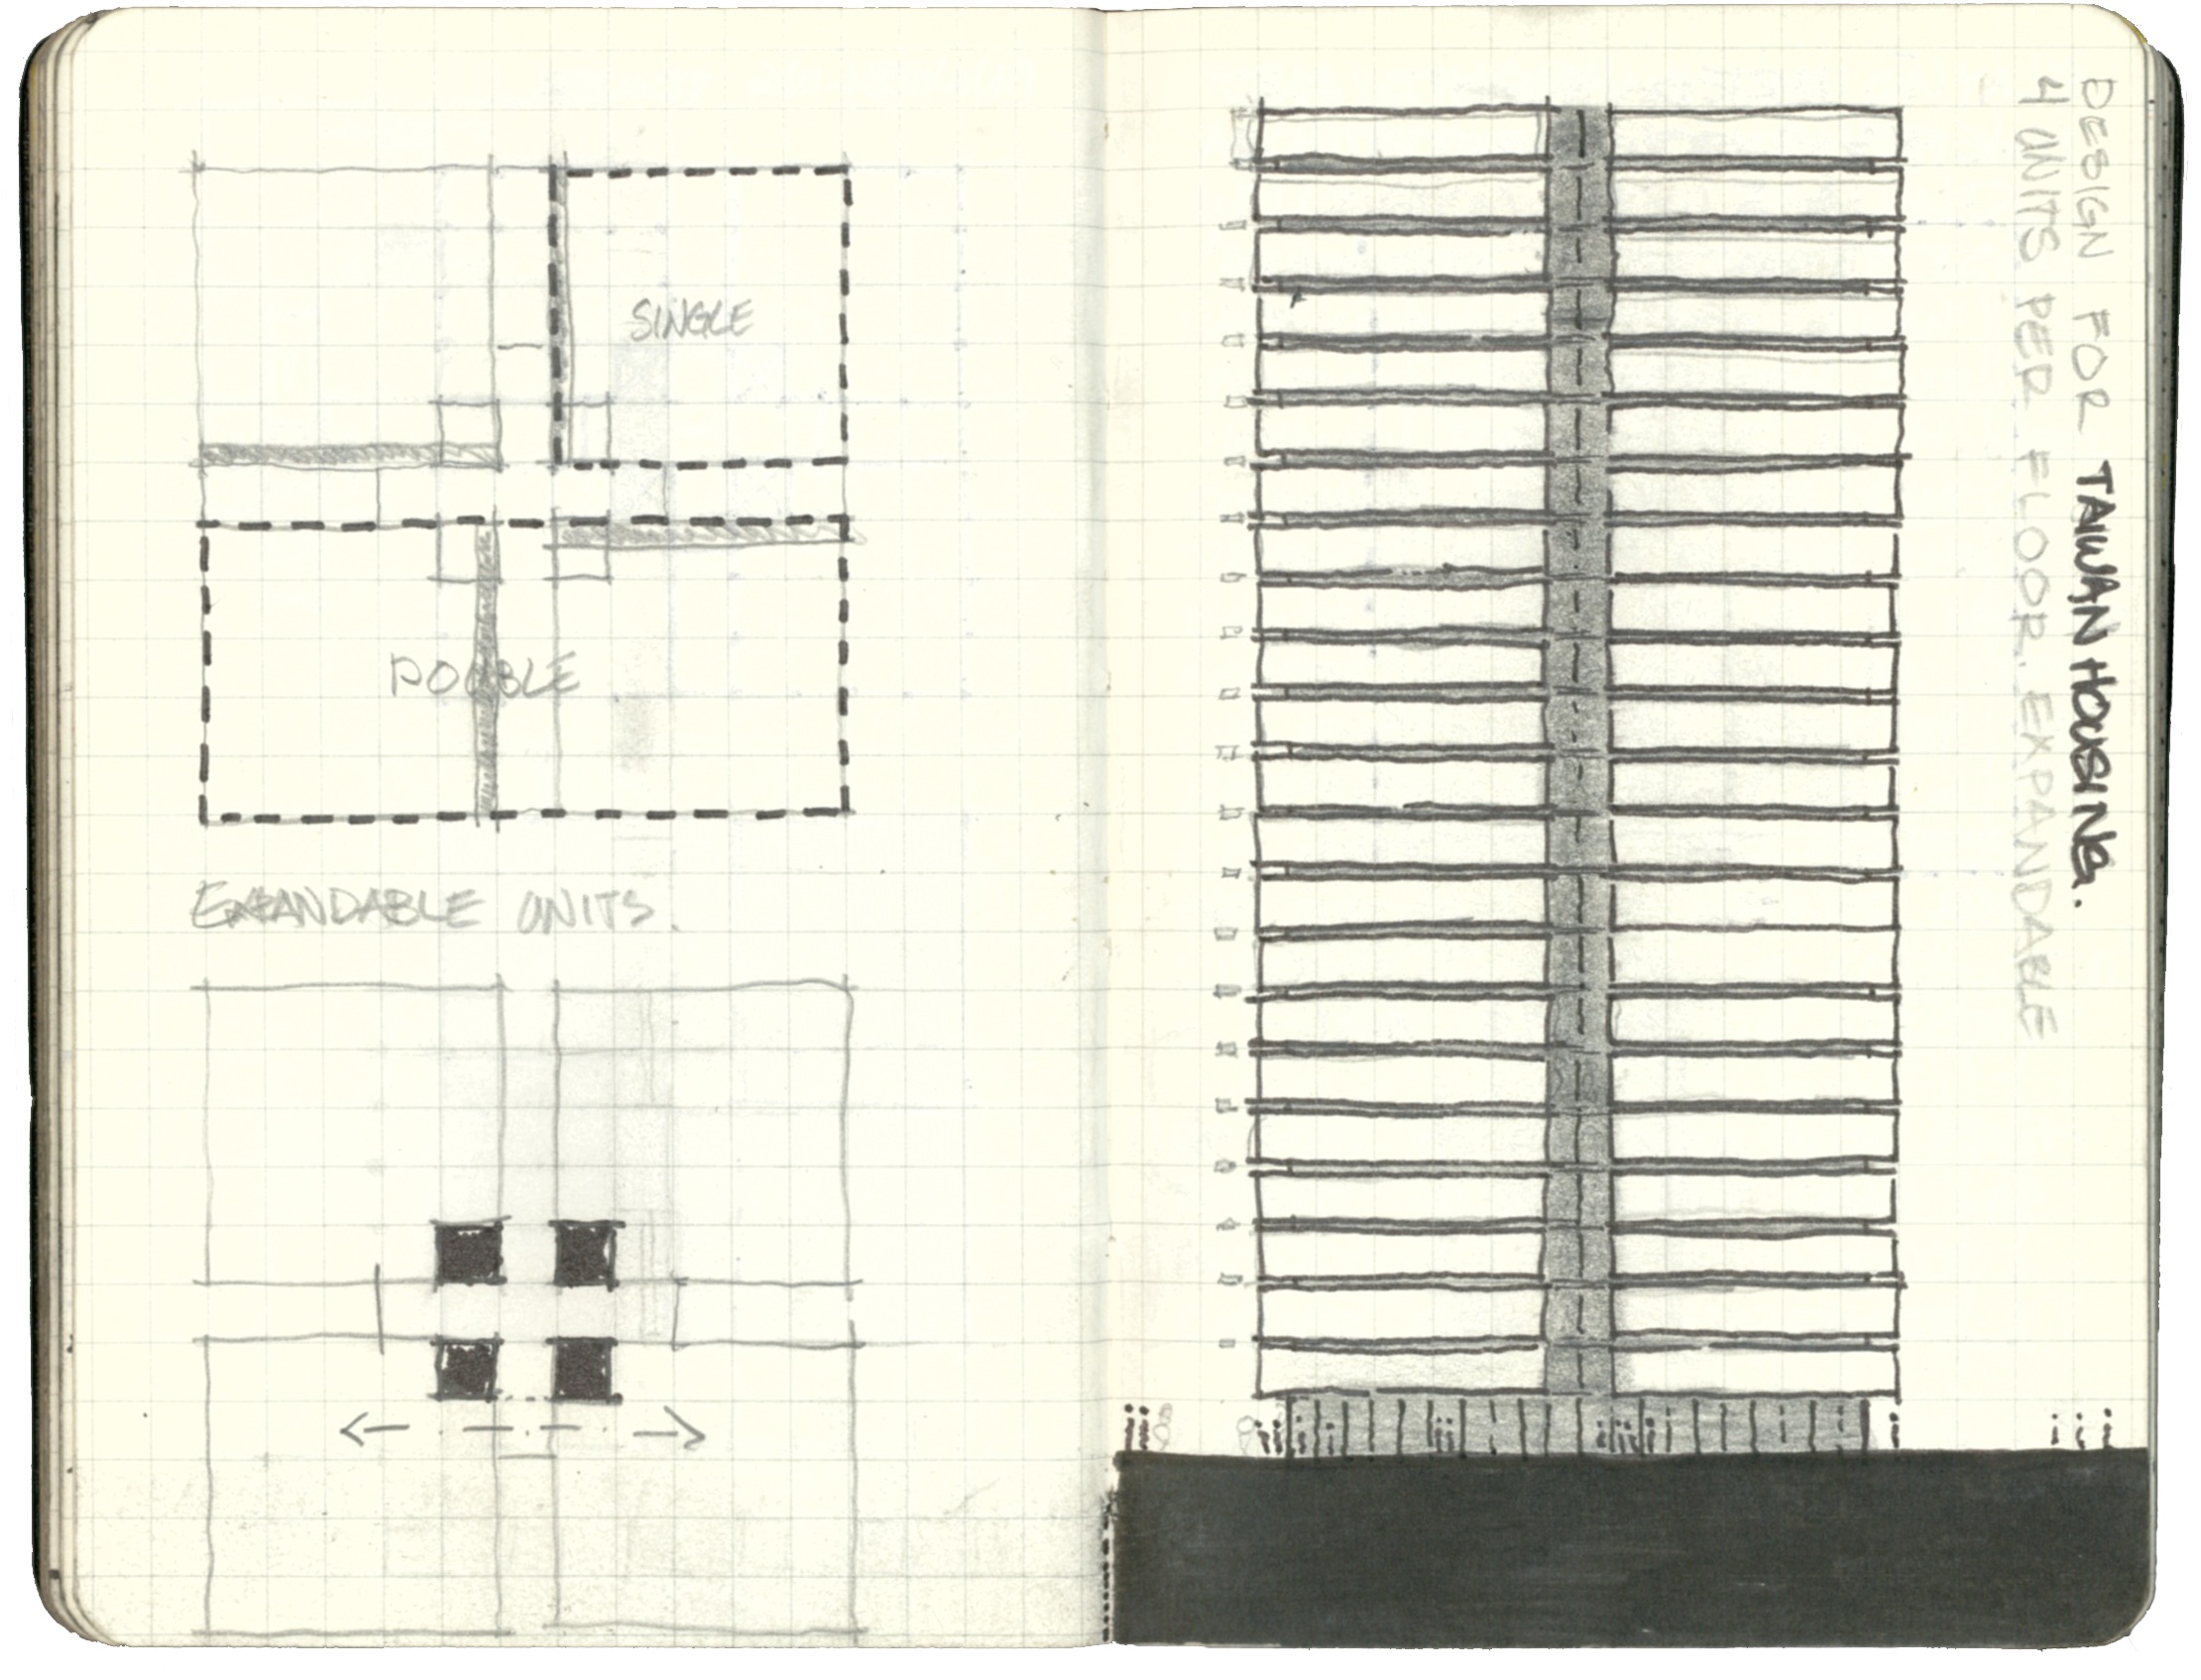 SINGLE
DOUBLE
EXPANDABLE UNITS.
DESIGN FOR TAIWAN HOUSING.
4 UNITS PER FLOOR. EXPANDABLE